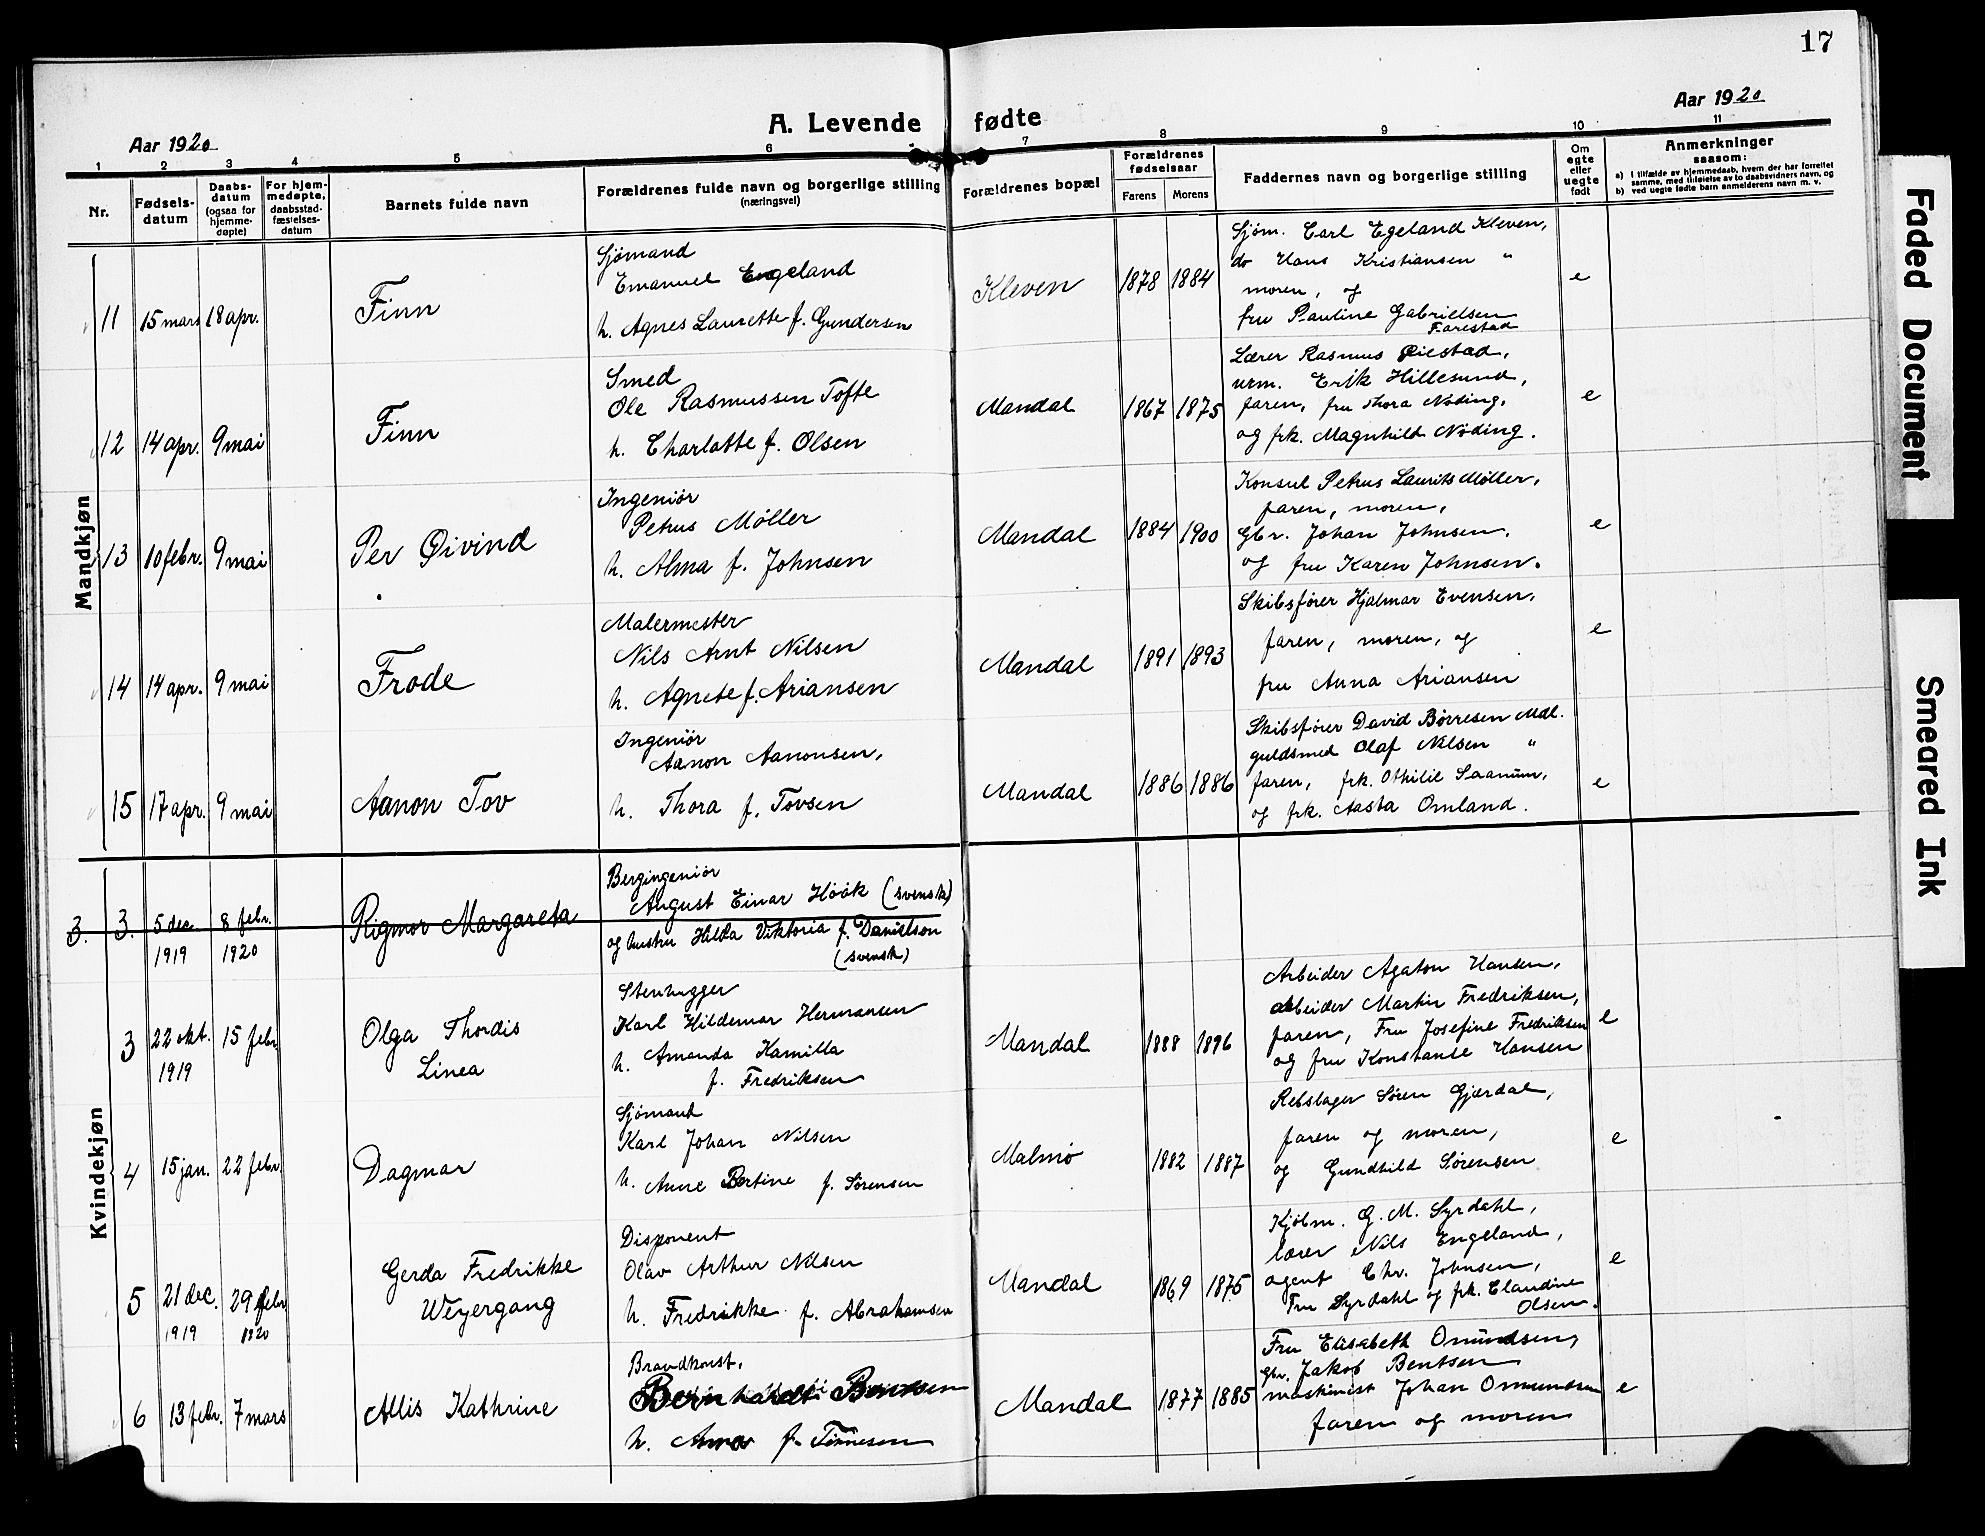 17
Aar 1920
A. Levende fødte
Aar 1920
1 2 3 4 5 6 7 8 9 10 11
Nr.
Fødsels-
datum
Daabs-
datum
(ogsaa for
hjemme-
døpte)
For hjem-
medøpte,
daabsstad-
fæstelses-
datum
Barnets fulde navn
Forældrenes fulde navn og borgerlige stilling
(næringsvei)
Forældrenes bopæl
Forældrenes
fødselsaar
Farens Morens
Faddernes navn og borgerlige stilling
Om
egte
eller
uegte
født
Anmerkninger
saasom:
a) i tilfælde av hjemmedaab, hvem der har forrettet
samme, med tilføielse av to daabsvidners navn, og
b) ved uegte fødte barn anmelderens navn m. v.
Mandkjøn
11 15 mars 18 apr.
Finn
Sjömand
Emanuel Engeland
h. Agnes Laurette f. Gundersen
Kleven
1878 1884
Sjøm. Carl Egeland Kleven,
do Hans Kristiansen "
moren, og
fru Pauline Gabrielsen
Farestad
e
12 14 apr. 9 mai
Finn
Smed
Ole Rasmussen Tofte
h. Charlotte f. Olsen
Mandal
1867 1875
Lærer Rasmus Øiestad,
urm. Erik Hillesund,
faren, fru Thora Nøding,
og frk. Magnhild Nøding.
e
13 10 febr. 9 mai
Per Øivind
Ingeniør
Petrus Møller
h. Alma f. Johnsen
Mandal
1884 1900
Konsul Petrus Laurits Møller,
faren, moren,
Gbr. Johan Johnsen.
og fru Karen Johnsen.
e
14 14 apr. 9 mai
Frode
Malermester
Nils Arnt Nilsen
h. Agnete f. Ariansen
Mandal
1891 1893
Skibsfører Hjalmar Evensen,
faren, moren, og
fru Anna Ariansen
e
15 17 apr. 9 mai
Aanon Tov
Ingeniør
Aanon Aanonsen,
h. Thora f. Tovsen
Mandal
1886 1886
Skibsfører David Børresen Mdl.
guldsmed Olaf Nilsen "
faren, frk. Othilie Saanum,
og frk. Aasta Omland.
e
Kvindekjøn
3. 3. 5 dec 8 febr.
1919 1920
Rigmor Margareta
Bergingeniør
August Einar Höök (svensk)
og hustru Hilda Viktoria f. Danielson
(svensk)
3 22 okt. 15 febr.
1919
Olga Thordis
Linea
Stenhugger
Karl Hildemar Hermansen
h. Amanda Kamilla
f. Fredriksen
Mandal
1888 1896
Arbeider Agaton Hansen,
arbeider Martin Fredriksen,
faren, Fru Josefine Fredriksen
og fru Konstanse Hansen
e
4 15 jan. 22 febr.
Dagmar
Sjömand
Karl Johan Nilsen
h. Anne Bertine f. Sørensen
Malmø
1882 1887
Rebslager Søren Gjærdal,
faren og moren,
og Gundhild Sørensen
e
5 21 dec. 29 febr
1919 1920
Gerda Fredrikke
Weyergang
Disponent
Olav Arthur Nilsen
h. Fredrikke f. Abrahamsen
Mandal
1869 1875
Kjøbm. G. M. Syrdahl,
lærer Nils Engeland,
agent Chr. Johnsen,
Fru Syrdahl og frk. Claudine
Olsen.
e
6 13 febr. 7 mars
Allis Kathrine
Brandkonst.
Bernhardt Bentsen
h. Anna f. Tønnesen
Mandal
1877 1885
Fru Elisabeth Omundsen,
Gbr. Jakob Bentsen
maskinist Johan Omundsen
faren og moren
e
Faded Document
Smeared Ink